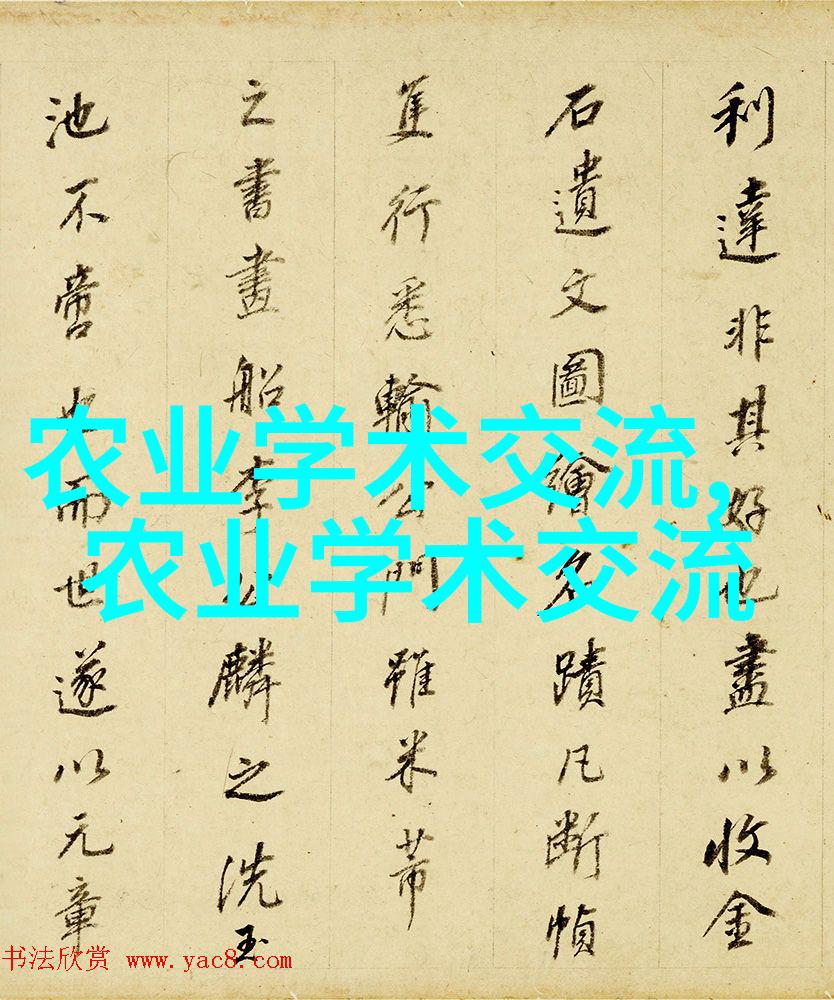 利達非其好也盡以收金
石遺文圖繪名蹟凡断幀
隻行悉輸公門雖米芾
之書畫船李公麟之洗玉
池不啻也而世遂以元章
农业学术交流,
农业学术交流
书法欣赏 www.yac8.com